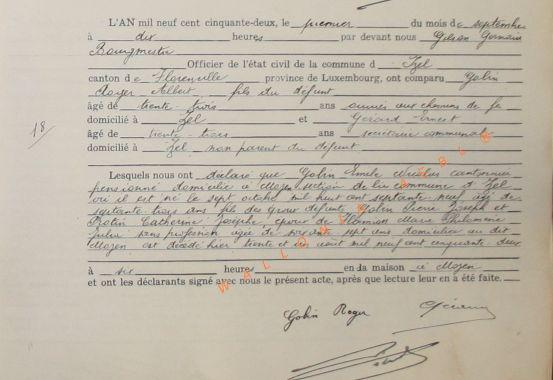 L'AN mil neuf cent cinquante-deux, le premier du mois de septembre
à dix heures par devant nous Gilson Germain
Bourgmestre
Officier de l'état civil de la commune d Izel
canton de Florenville province de Luxembourg, ont comparu Gobin
Roger Albert, fils du défunt
âgé de trente-trois ans ouvrier aux chemins de fer
domicilié à Izel et Gérard Ernest
âgé de trente-trois ans secrétaire communal
domicilié à Izel non parent du défunt
18
Lesquels nous ont déclaré que Gobin Emile Nicolas cantonnier
pensionné domicilié à Moyen section de la commune d Izel
où il est né le sept octobre mil huit cent septante-neuf âgé de
septante-deux ans fils des époux défunts Gobin Pierre Joseph et
Catherine époux de Marie Philomène
sans profession agée de sept ans domiciliée au dit
Moyen est décédé hier trente et un août mil neuf cent cinquante deux
à six heures en la maison à Moyen
et ont les déclarants signé avec nous le présent acte, après que lecture leur en a été faite.
WALLONIE
Gobin Roger